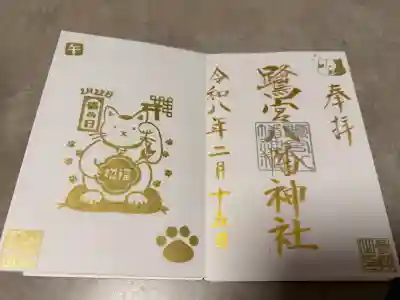 奉拝
鷺宮八幡神社
令和八年二月十五日
午
2月22日
猫の日
招福